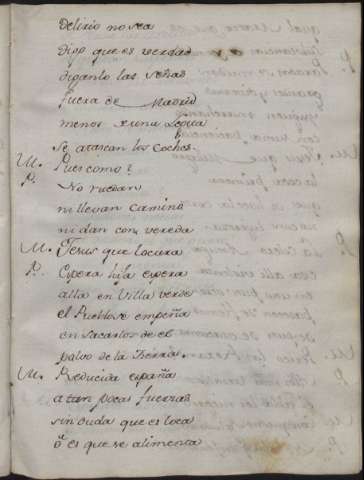 delirio no sea
digo que es verdad
diganlo las señas
fuera de Madrid
menos de una Legua
se atascan los coches.
M. Pues como?
P. No ruedan
ni llevan camino
ni dan con vereda
M. Jesus que locura
P. Espera hija espera
alla en Villa verde
el Pueblo se empeña
en sacarlos de el
polvo de la tierra.
M. Reducida españa
a tan pocas fuerzas
sin duda que es loca
o es que se alimenta